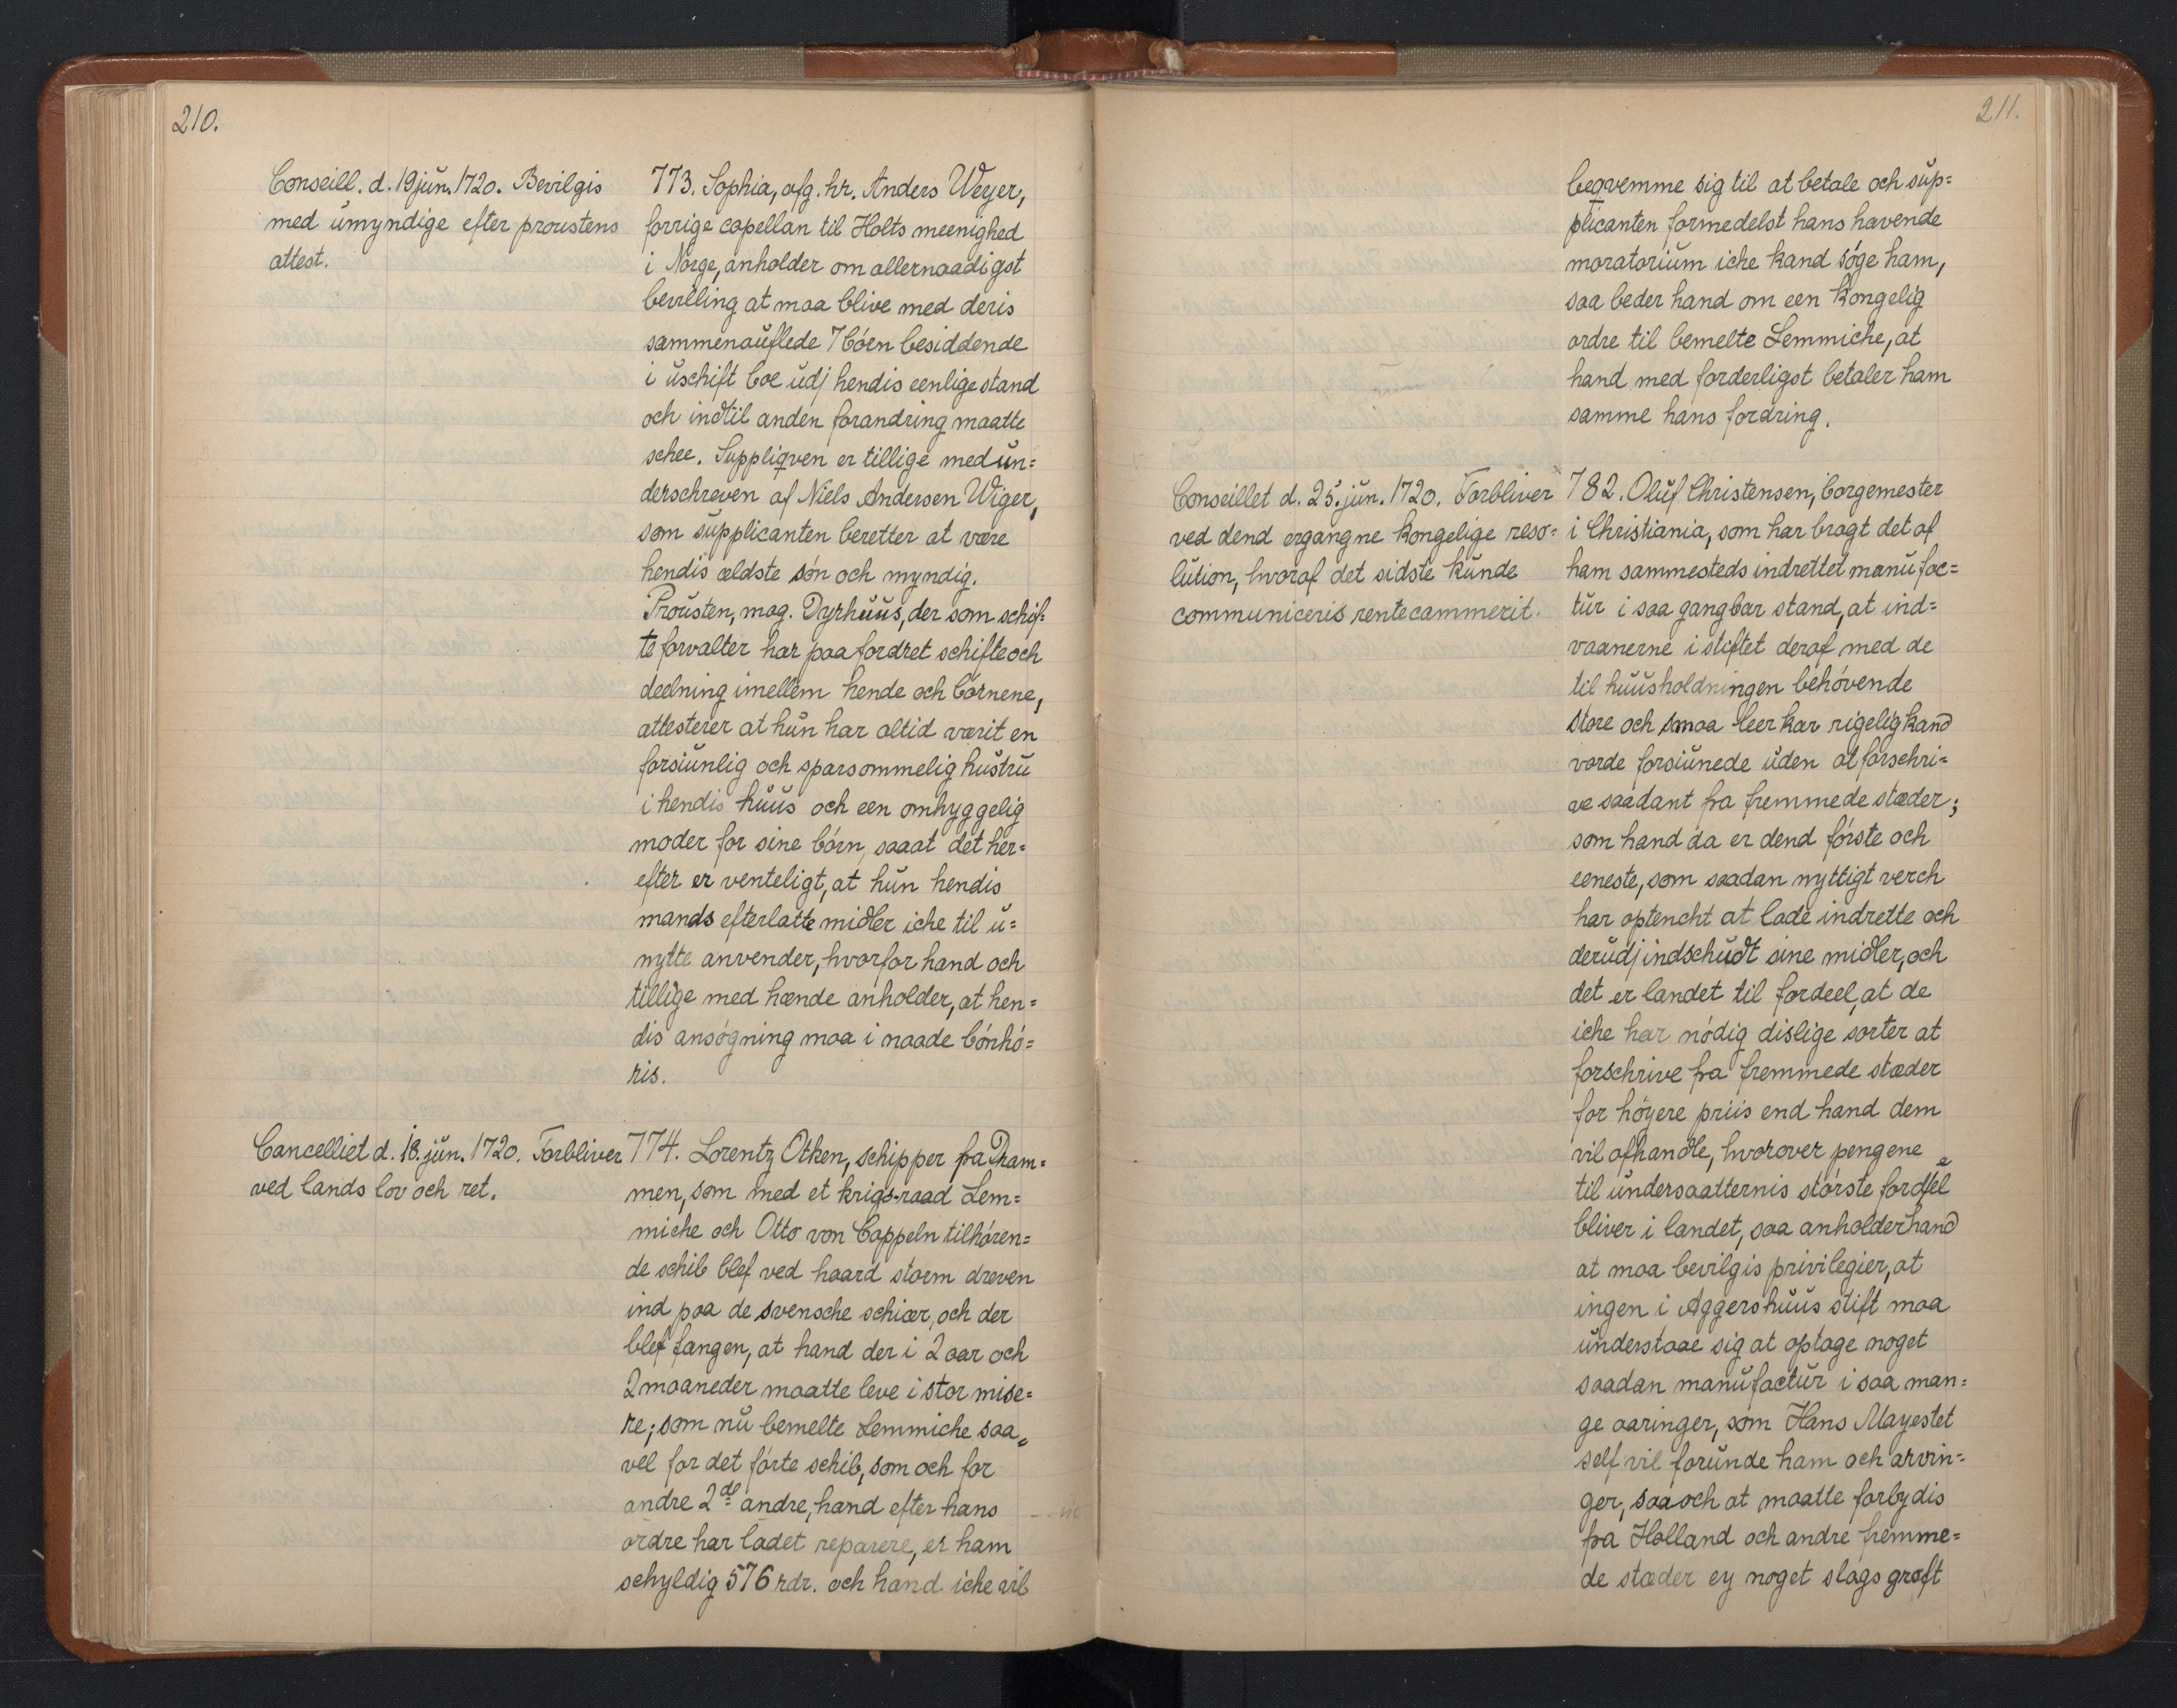 210.
Conseill. d. 19 jun. 1720. Bevilgis
med umyndige efter proustens
attest.
773. Sophia, afg. hr. Anders Weyer,
forrige capellan til Holts meenighed
i Norge, anholder om allernaadigst
bevilling at maa blive med deris
sammenauflede 7 börn besiddende
i uschift boe udj hendis eenlige stand
och indtil anden forandring maatte
schee. Suppliqven er tillige med un=
derschreven af Niels Andersen Wiger,
som supplicanten beretter at være
hendis ældste sön och myndig.
Prousten, mag. Dyrhuus, der som schif=
te forvalter har paafordret schifte och
deelning imellem hende och börnene,
attesterer at hun har altid værit en
forsiunlig och sparsommelig hustru
i hendis huus och een omhyggelig
moder for sine börn, saaat det her=
efter er venteligt, at hun hendis
mands efterlatte midler iche til u=
nytte anvender, hvorfor hand och
tillige med hænde anholder, at hen=
dis ansögning maa i naade bönhö=
ris.
Cancelliet d. 18. jun. 1720. Forbliver
ved lands lov och ret.
774. Lorentz Otken, schipper fra Dram=
men, som med et krigs-raad Lem=
miche och Otto von Cappeln tilhören=
de schib blef ved haard storm dreven
ind paa de svensche schiær, och der
blef fangen, at hand der i 2 aar och
2 maaneder maatte leve i stor mise=
re; som nu bemelte Lemmiche saa=
vel for det förte schib, som och for
andre 2de andre, hand efter hans
ordre har ladet reparere, er ham
schyldig 576 rdr. och hand iche vil
211.
beqvemme sig til at betale och sup=
plicanten formedelst hans havende
moratorium iche kand söge ham,
saa beder hand om een kongelig
ordre til bemelte Lemmiche, at
hand med forderligst betaler ham
samme hans fordring.
Conseillet d. 25. jun. 1720. Forbliver
ved dend ergangne kongelige reso=
lution, hvoraf det sidste kunde
communiceris rentecammerit.
782. Oluf Christensen, borgemester
i Christiania, som har bragt det af
ham sammesteds indrettet manufac=
tur i saa gangbar stand, at ind=
vaanerne i stiftet deraf med de
til huusholdningen behövende
store och smaa leerkar rigelig kand
vorde forsiunede uden at forschri=
ve saadant fra fremmede stæder;
som hand da er dend förste och
eeneste, som saadan nyttigt verch
har optencht at lade indrette och
derudj indschudt sine midler, och
det er landet til fordeel, at de
iche har nödig dislige sorter at
forschrive fra fremmede stæder
for höyere priis end hand dem
vil afhandle, hvorover pengene
til undersaatternis störste fordeel
bliver i landet, saa anholder hand
at maa bevilgis privilegier, at
ingen i Aggershuus stift maa
understaae sig at optage noget
saadan manufactur i saa man=
ge aaringer, som Hans Mayestet
self vil forunde ham och arvin=
ger, saa och at maatte forbydis
fra Holland och andre fremme=
de stæder ey noget slags graft